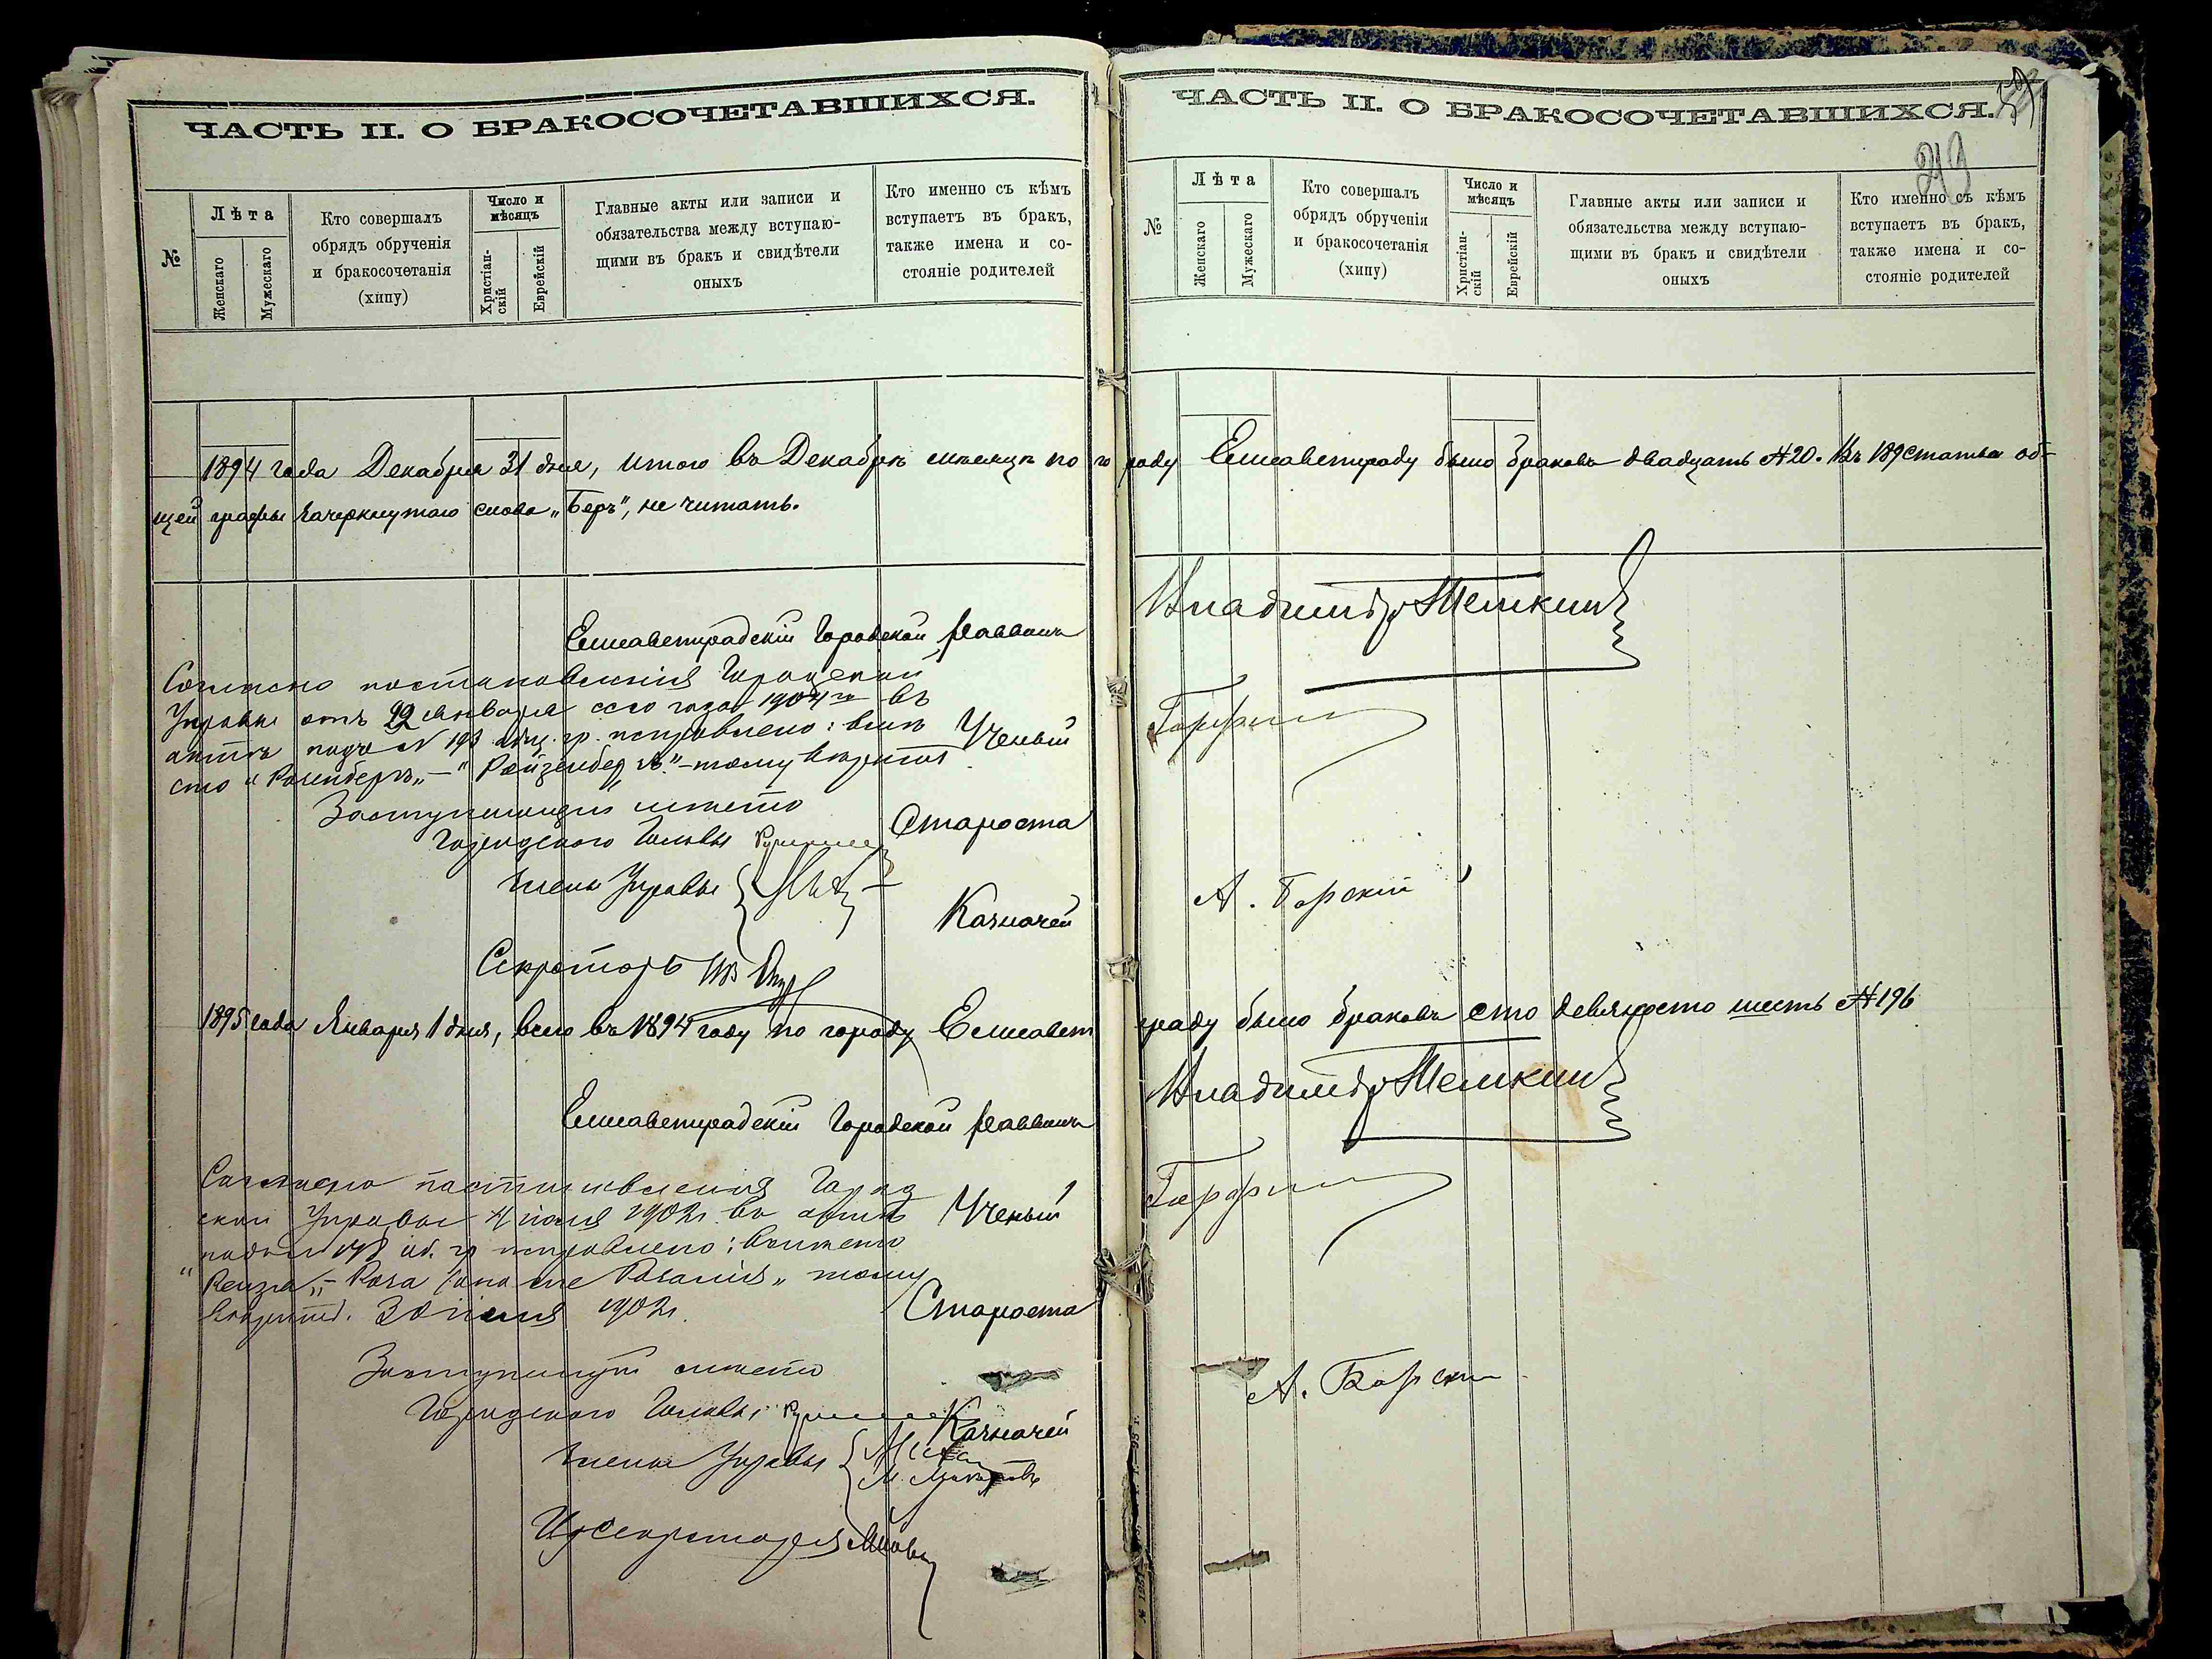 ЧАСТЬ II. О БРАКОСОЧЕТАВШИХСЯ.
№
Лѣта
Женскаго
Мужескаго
Кто совершалъ
обрядъ обрученія
и бракосочетанія
(хипу)
Число и
мѣсяцъ
Христіан-
скій
Еврейскій
Главные акты или записи и
обязательства между вступаю-
щими въ бракъ и свидѣтели
оныхъ
Кто именно съ кѣмъ
вступаетъ въ бракъ,
также имена и со-
стояніе родителей
ЧАСТЬ II. О БРАКОСОЧЕТАВШИХСЯ.
219
№
Лѣта
Женскаго
Мужескаго
Кто совершалъ
обрядъ обрученія
и бракосочетанія
(хипу)
Число и
мѣсяцъ
Христіан-
скій
Еврейскій
Главные акты или записи и
обязательства между вступаю-
щими въ бракъ и свидѣтели
оныхъ
Кто именно съ кѣмъ
вступаетъ въ бракъ,
также имена и со-
стояніе родителей
1894 года Декабря 31 дня, итого въ Декабрѣ мѣсяцѣ по городу Елисаветграду было браковъ двадцать №20. Въ 189 статьи об-
щей графы зачеркнутаго слова „Беръ", не читать.
Елисаветградскій Городской Раввинъ Владиміръ Темкинъ
Согласно постановленія Городской
Управы отъ 22 января сего года 1904 го въ
актѣ подъ N 193 общ. гр. исправлено: вмѣ
сто "Роинбергъ„ — "Ройзенбергъ." — тому вѣрятъ
Ученый
Заступающій мѣсто
Городского Головы
Староста
Члены Управы
Казначей
А. Борскій
Секретарь
1895 года Января 1 дня, всего въ 1894 году по городу Елисаветграду было браковъ сто девяносто шесть №196
Елисаветградскій Городской Раввинъ Владиміръ Темкинъ
Согласно постановленія Город
ской Управы 4 іюля 1902г. въ актѣ
подъ N 178 об. гр исправлено: вмѣсто
"Рейзя„ — Роза (она же Розалія„ тому
1902г.
Ученый
Староста
Заступающій мѣсто
Городского Головы
Казначей
Члены Управы
А. Борскій
Секретаря